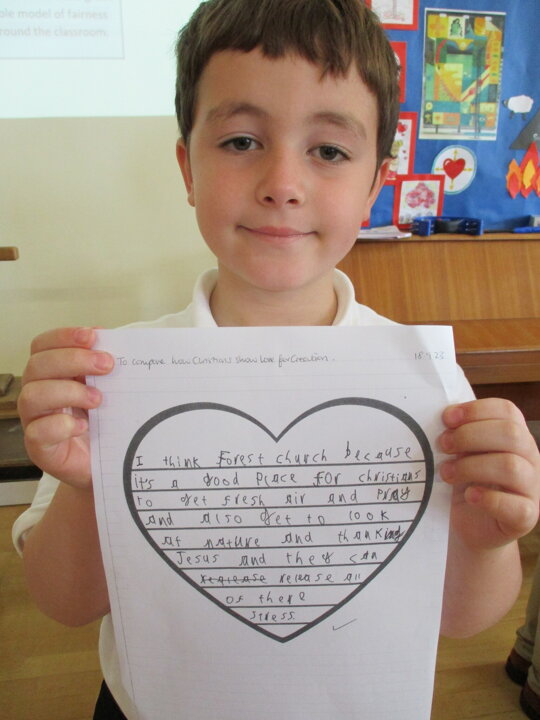 ole model of fairness
round the classroom.
To compare how Christians show love for Creation.
I think Forest church because
it's a good place for christians
to get fresh air and pray
and also get to look
at nature and thanking
Jesus and they can
release all
of there
stress